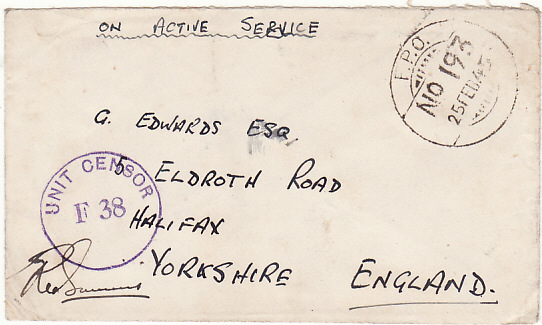 ON ACTIVE SERVICE
F.P.O.
NO 193
25 FEB 43
G. EDWARDS ESQ
5 ELDROTH ROAD
HALIFAX
YORKSHIRE ENGLAND.
UNIT CENSOR
F 38